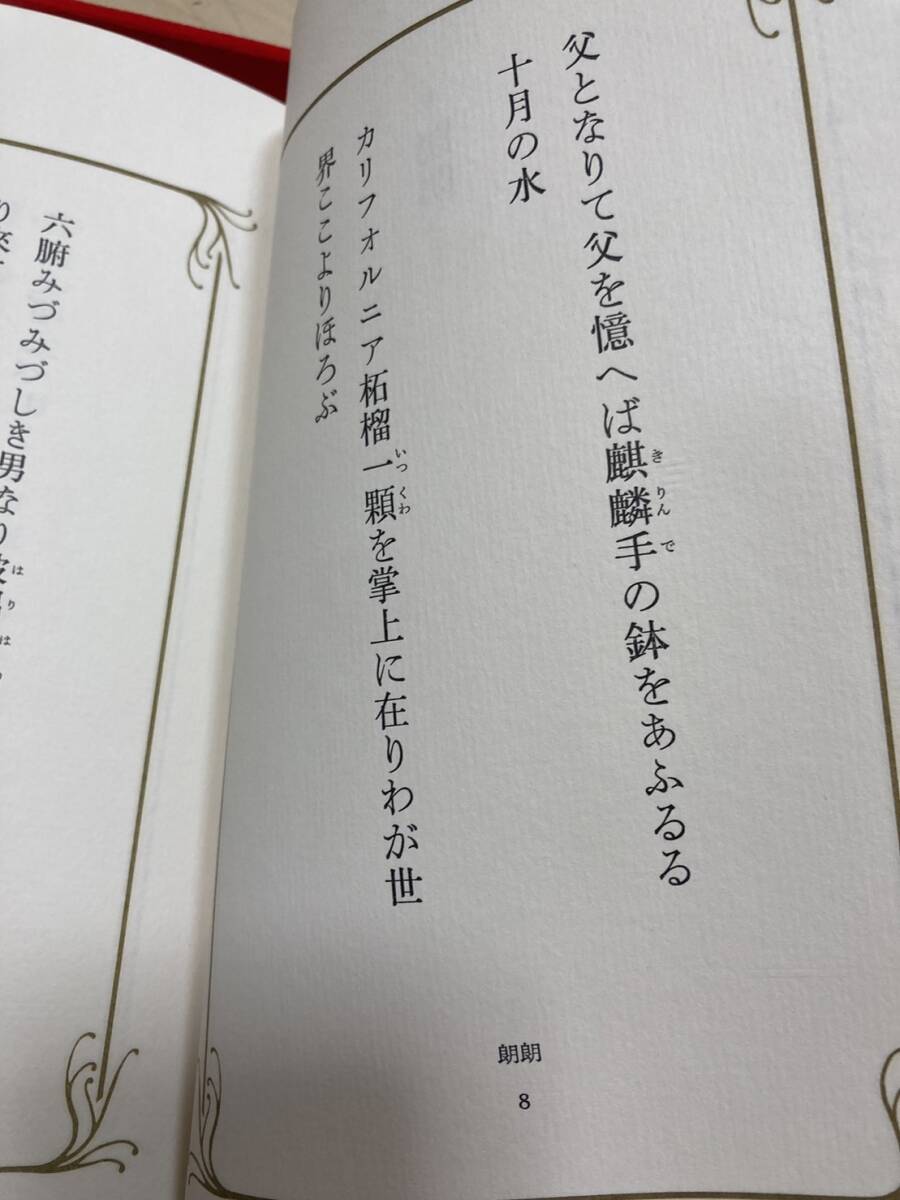 父となりて父を憶へば麒麟手の鉢をあふるる
十月の水
カリフオルニア柘榴一顆を掌上に在りわが世
界ここよりほろぶ
朗朗
8
六腑みづみづしき男なり